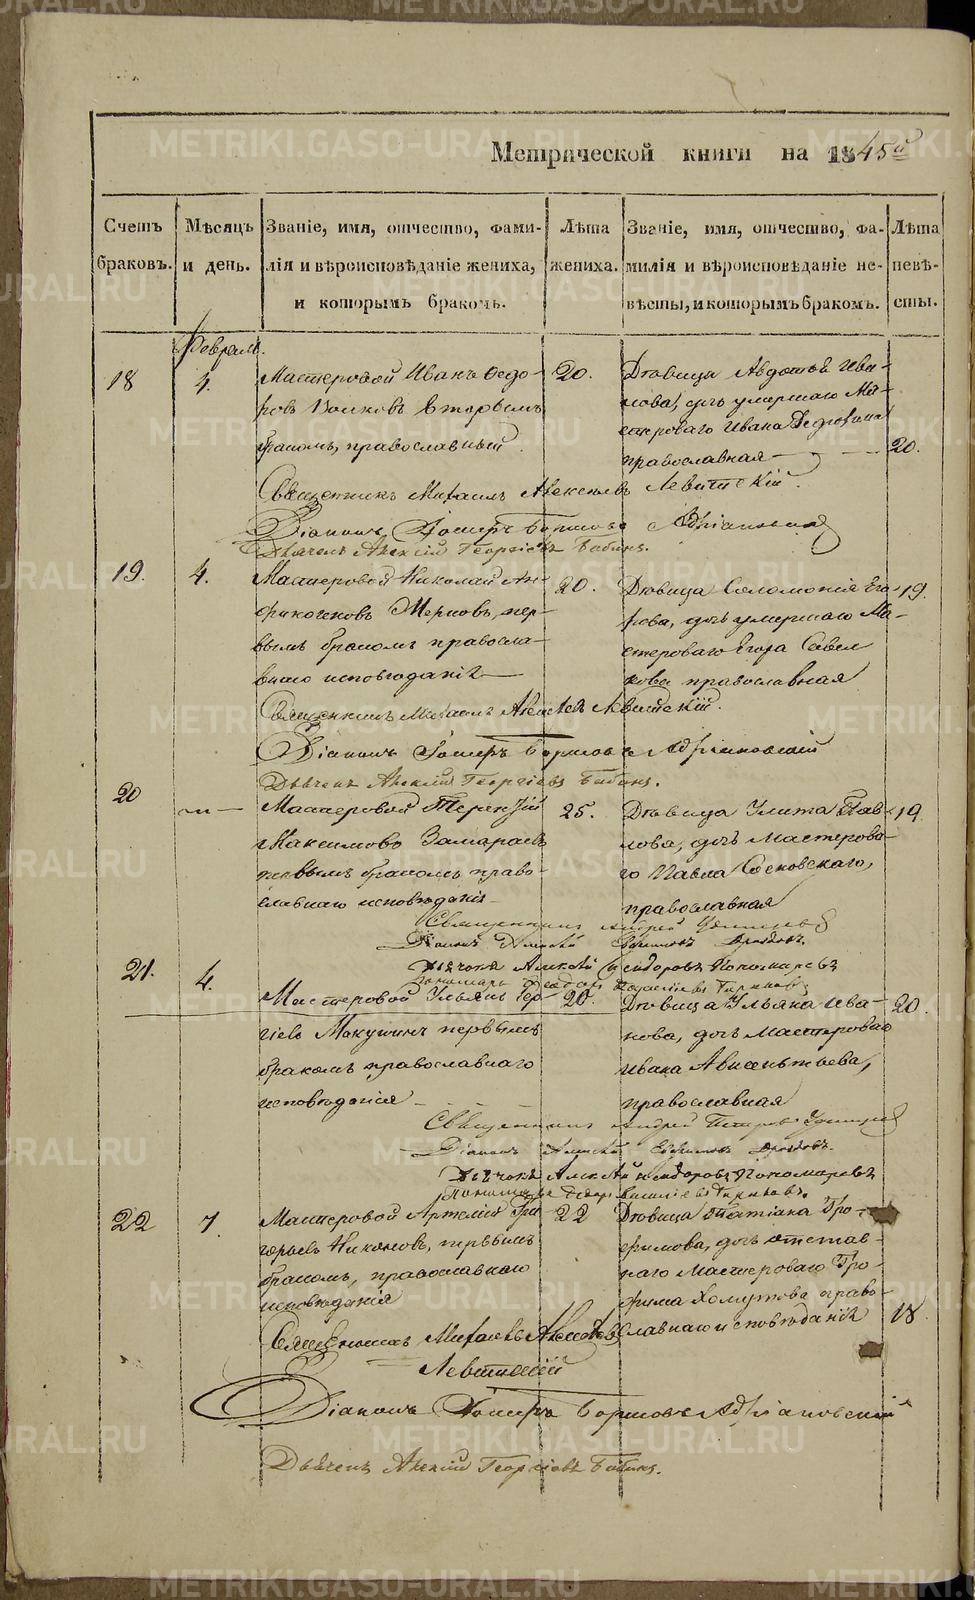 METRIKI.GASO-URAL.RU
Метрической книги на 1845й
Счетъ браковъ.
Мѣсяцъ и день.
Званіе, имя, отчество, фами-
лія и вѣроисповѣданіе жениха,
и которымъ бракомъ.
Лѣта жениха.
Званіе, имя, отчество, фа-
милія и вѣроисповѣданіе не-
вѣсты, и которымъ бракомъ.
Лѣта невѣ-
сты.
Февраль.
18
4.
Мастеровой Иванъ Ѳедо-
ровъ Волковъ вторымъ
бракомъ, православный
20.
Дѣвица Авдотья Ива-
нова, дочь умершаго Ма-
стероваго Ивана
православная
20.
Священникъ Михаилъ Алексѣевъ Левитскій.
Діаконъ Борисовъ Адріановскій
Дьячекъ Алексій Георгіевъ Бабинъ.
19.
4.
Мастеровой Николай
первымъ бракомъ православ-
наго исповѣданія
20.
Дѣвица Соломонія Его-
рова, дочь умершаго Ма-
стероваго Егора Савел
кова православная
19.
Священникъ Михаилъ Алексѣевъ Левитскій.
Діаконъ Борисовъ Адріановскій
Дьячекъ Алексій Георгіевъ Бабинъ.
20
Мастеровой Терентій
Максимовъ Замараевъ
первымъ бракомъ право-
славнаго исповѣданія
25.
Дѣвица Улита Пав-
лова, дочь Мастерова-
го Павла Сосновскаго,
православная
19
Священникъ Андрей Удинцевъ
Діаконъ Евфимовъ Дроздовъ.
Дьячокъ Алексѣй Исидоровъ Пономаревъ
Пономарь Ѳедоръ
21.
4.
Мастеровой Ульянъ Гер-
Макушинъ первымъ
бракомъ православнаго
исповѣданія
20.
Дѣвица Ульяна Ива-
нова, дочь Мастероваго
Ивана Авксентьева,
православная
20.
Священникъ Андрей Петровъ Удинцевъ
Діаконъ Евфимовъ Дроздовъ.
Дьячокъ Алексѣй Исидоровъ Пономаревъ
Пономарь Ѳедоръ
22
7.
Мастеровой Артемій Гри
горьевъ Никоновъ, первымъ
бракомъ, православнаго
исповѣданія
22
Дѣвица Татіана Тро-
фимова, дочь отстав-
наго Мастероваго Тро-
фима Хомутова право-
славнаго исповѣданія
18.
Священникъ Михаилъ Алексѣевъ
Левитскій
Діаконъ Борисовъ Адріановскій
Дьячекъ Алексій Георгіевъ Бабинъ.